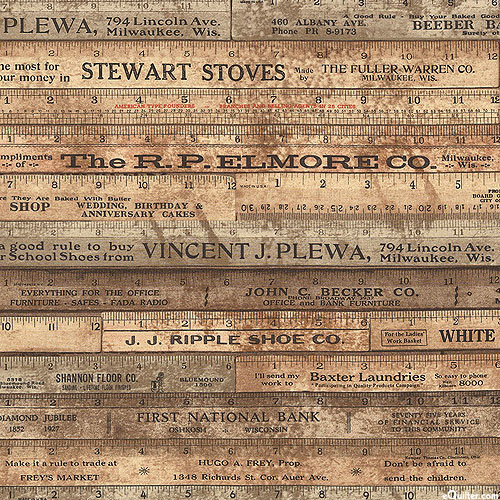 PLEWA, 794 Lincoln Ave. Milwaukee, Wis.
460 ALBANY AVE. Phone PR 8-9173
A Good Rule - Buy Your Baked Good
BEEBER
he most for our money in STEWART STOVES Made by THE FULLER-WARREN CO. MILWAUKEE, WIS.
AMERICAN TYPE FOUNDERS
BRANCHES AND SELLING AGENTS IN 28 CITIES
mpliments of The R.P. ELMORE CO. Milwaukee, Wis.
re They Are Baked With Butter
SHOP WEDDING, BIRTHDAY & ANNIVERSARY CAKES
a good rule to buy r School Shoes from VINCENT J. PLEWA, 794 Lincoln Ave. Milwaukee, Wis.
EVERYTHING FOR THE OFFICE
FURNITURE - SAFES - FADA RADIO
JOHN C. BECKER CO.
PHONE BROADWAY
OFFICE AND BANK FURNITURE
J. J. RIPPLE SHOE CO.
For the Ladies' Work Basket
WHITE
SHANNON FLOOR CO.
BLUEMOUND
I'll send my work to Baxter Laundries So easy to phone 8000
Participating in Quality Products Campaign
DIAMOND JUBILEE
1852 1927
FIRST NATIONAL BANK
OSHKOSH WISCONSIN
SEVENTY FIVE YEARS
OF FINANCIAL SERVICE
TO THIS COMMUNITY
Make it a rule to trade at
FREY'S MARKET
HUGO A. FREY, Prop.
1348 Richards St. Cor. Auer Ave.
Don't be afraid to
send the children.
eQuilter.com